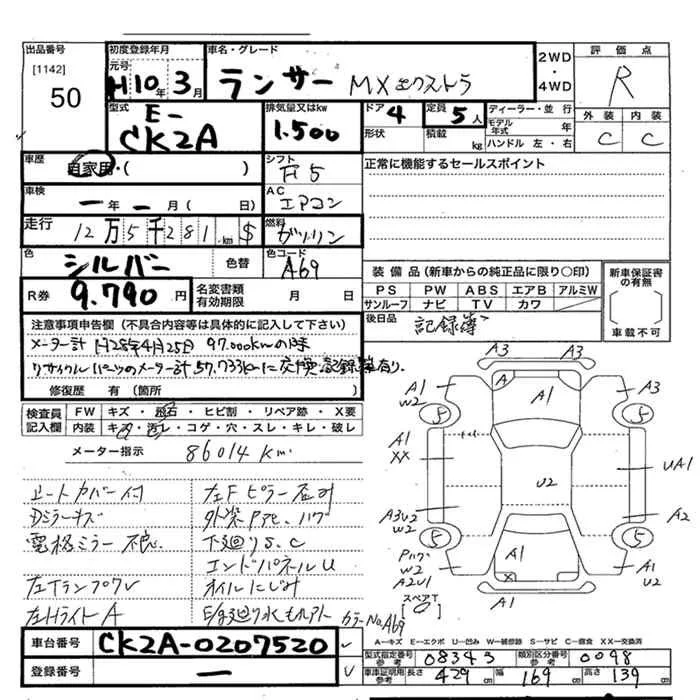 出品番号
[1142]
50
初度登録年月
元号
H10年3月
車名・グレード
ランサー MXエクストラ
2WD
・
4WD
評価点
R
型式
E-
CK2A
排気量又はkw
1.500
ドア
4
定員
5人
形状
積載
kg
ディーラー・並行
モデル年式
年
ハンドル 左・右
外装 内装
C C
車歴
自家用・( )
シフト
F5
正常に機能するセールスポイント
車検
ー年ー月( 日)
AC
エアコン
走行
12万5千281km $
燃料
ガソリン
色
シルバー
色替
色コード
A69
R券
9.790円
名変書類
有効期限
月 日
装備品(新車からの純正品に限り○印)
PS PW ABS エアB アルミW
サンルーフ ナビ TV カワ
後日品
記録簿
新車保証書
の有無
車載不可
注意事項申告欄(不具合内容等は具体的に記入して下さい)
メーター計 H28年4月25日 97.000kmの時
リサイクルパーツのメーター計 57.733kmに交換 記録簿有り.
修復歴 有(箇所 )
検査員
記入欄
FW キズ・飛石・ヒビ割・リペア跡・X要
内装 キズ・汚レ・コゲ・穴・スレ・キレ・破レ
メーター指示 86014km
シートカバー付
Dミラーキズ
電格ミラー不良
左Tランプワレ
左Hライト A
左Fピラー
下廻りS.C
エンドパネルU
オイルにじみ
カラーNo.A69
A3 A3
A1
W2
5
A1
A3
5
A1
XX
U2
UA1
A3U2
W2
A2
5
5
W2
A2U1
A1
X
A1
A1
U2
スペアT
車台番号
CK2A-0207520
登録番号
ー
A-キズ E-エクボ U-凹み W-補修跡 S-サビ C-腐食 XX-交換済
型式指定番号
参考
08343
類別区分番号
参考
0098
車庫証明用
参考
長さ 429cm 幅 169cm 高さ 139cm